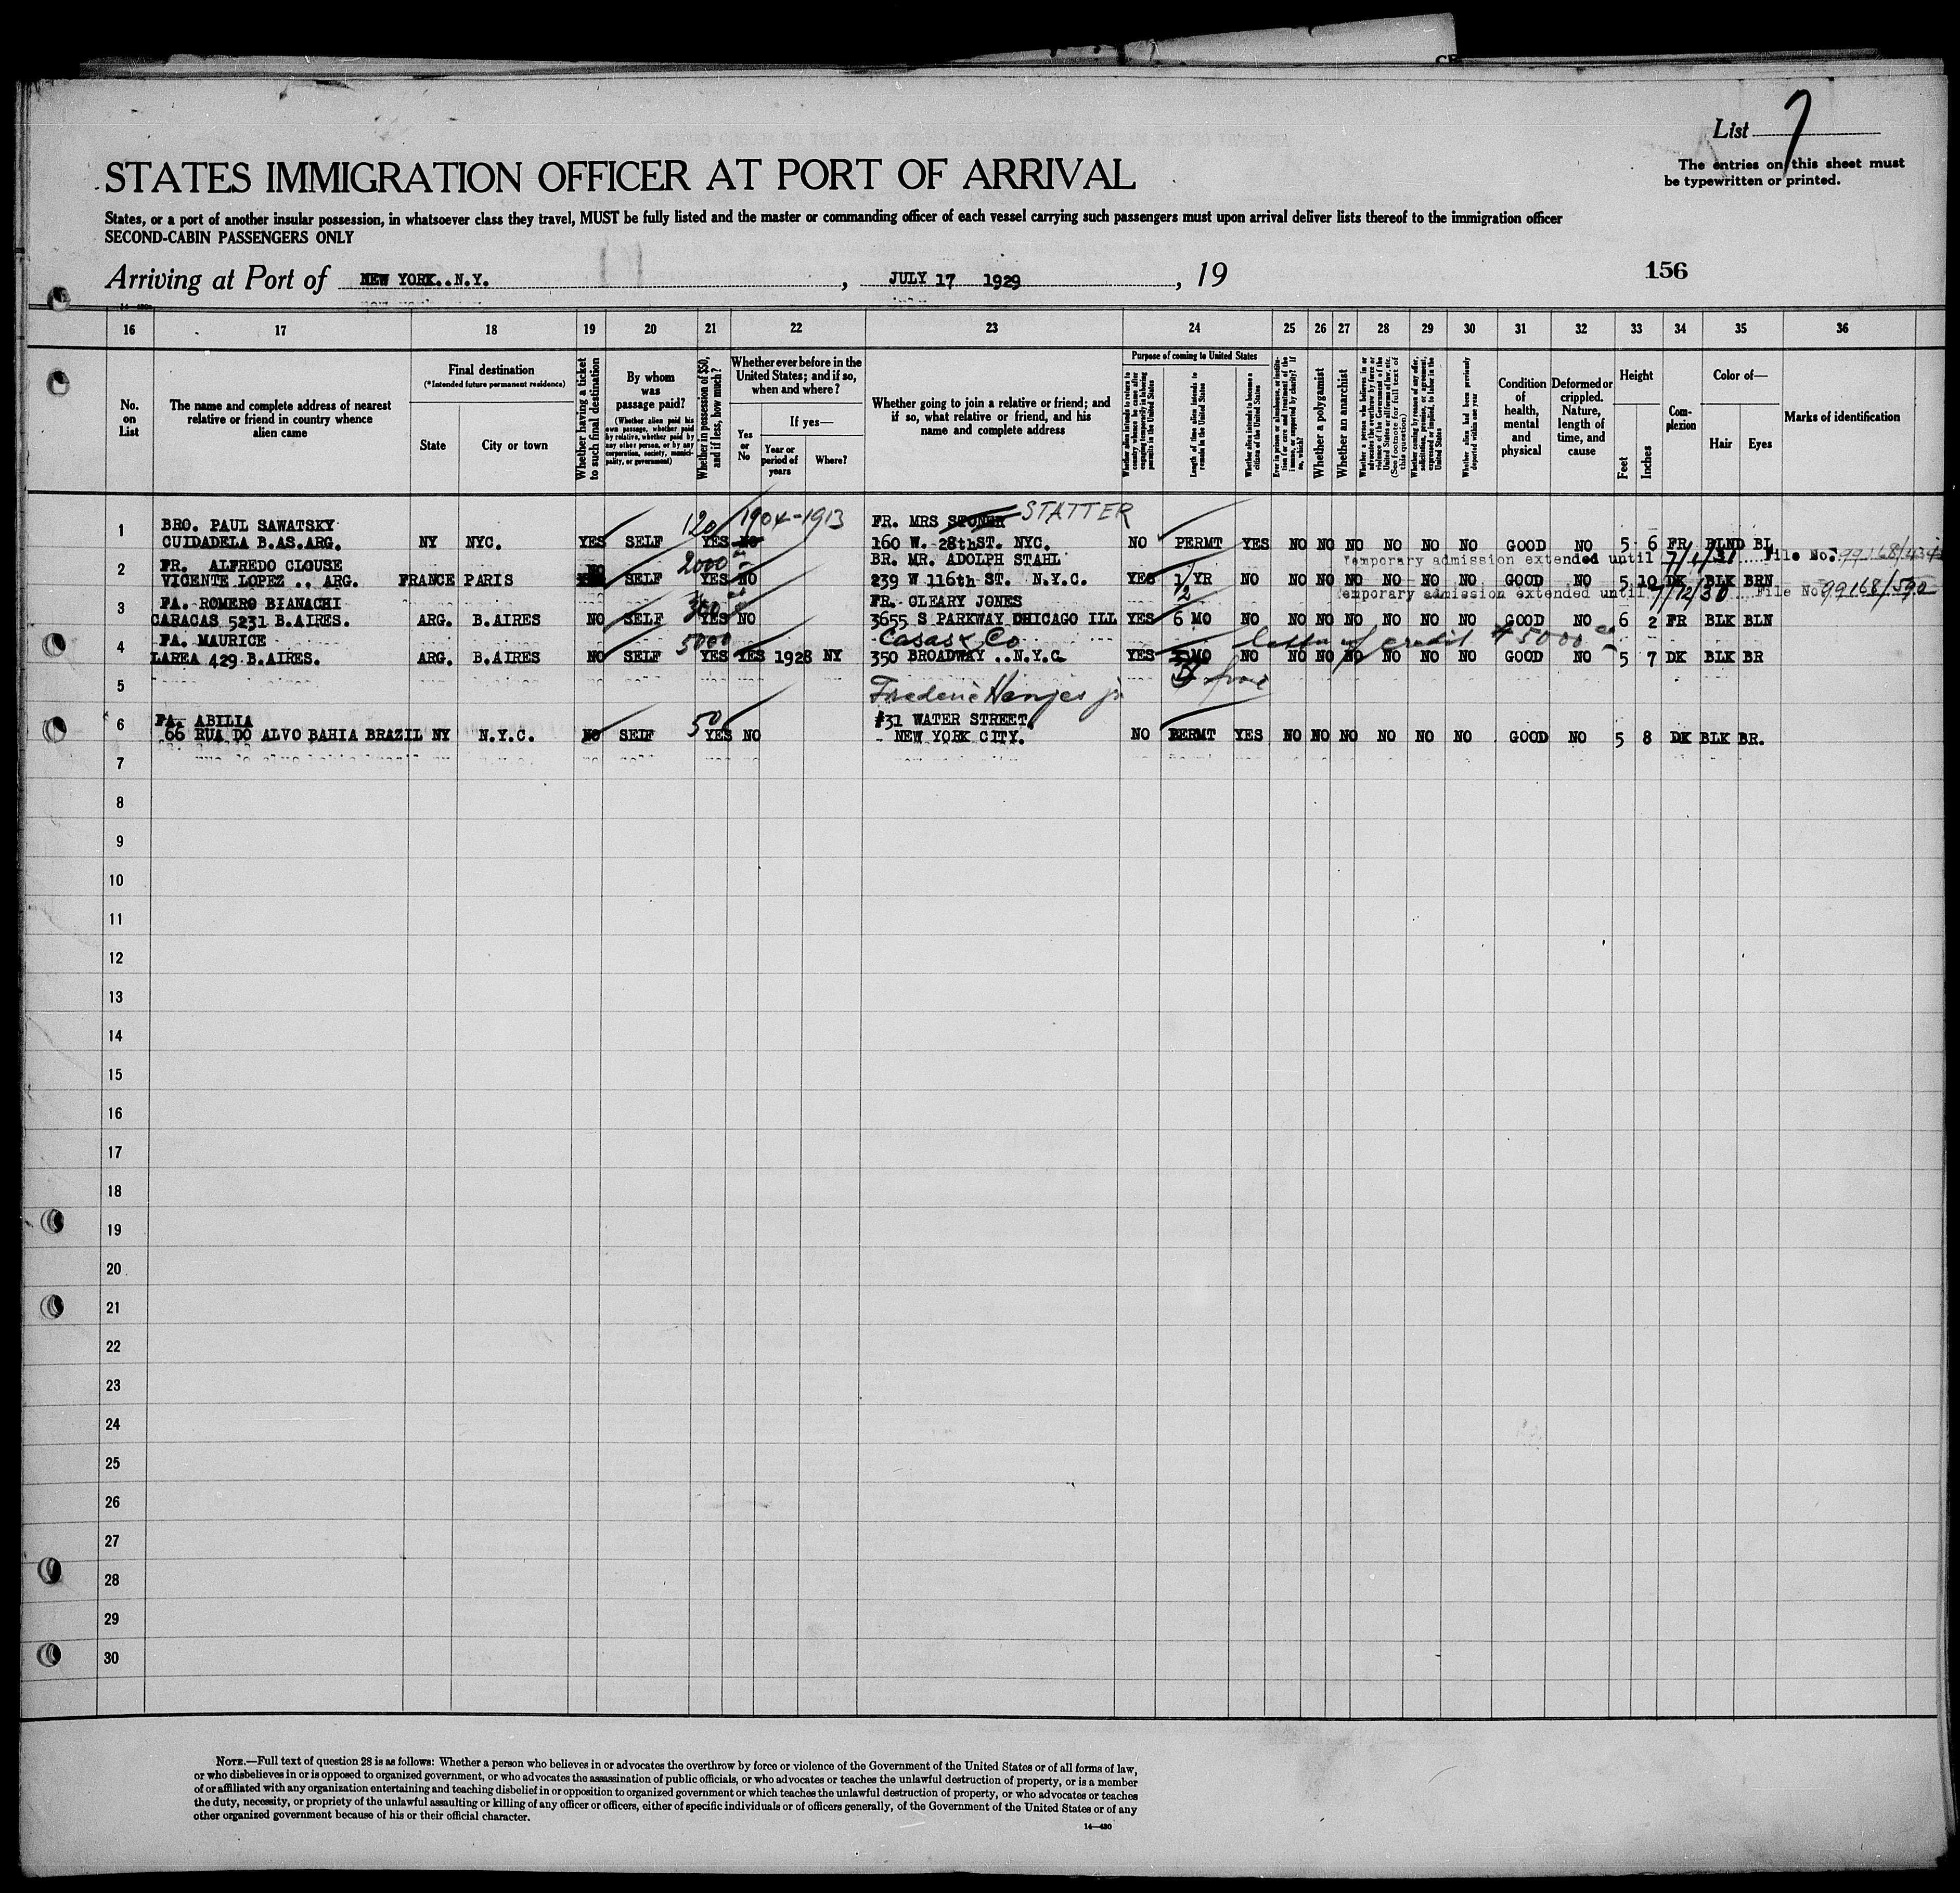 List 7
The entries on this sheet must
be typewritten or printed.
STATES IMMIGRATION OFFICER AT PORT OF ARRIVAL
States, or a port of another insular possession, in whatsoever class they travel, MUST be fully listed and the master or commanding officer of each vessel carrying such passengers must upon arrival deliver lists thereof to the immigration officer
SECOND-CABIN PASSENGERS ONLY
Arriving at Port of NEW YORK..N.Y. , JULY 17 1929 , 19 156
16 17 18 19 20 21 22 23 24 25 26 27 28 29 30 31 32 33 34 35 36
No. on List
The name and complete address of nearest relative or friend in country whence alien came
Final destination
(*Intended future permanent residence)
State
City or town
Whether having a ticket to such final destination
By whom was passage paid?
(Whether alien paid his own passage, whether paid by relative, whether paid by any other person, or by any corporation, society, municipality, or government)
Whether in possession of $50, and if less, how much?
Whether ever before in the United States; and if so, when and where?
Yes or No
If yes—
Year or period of years
Where?
Whether going to join a relative or friend; and if so, what relative or friend, and his name and complete address
Purpose of coming to United States
Whether alien intends to return to country whence he came after engaging temporarily in laboring pursuits in the United States
Length of time alien intends to remain in the United States
Whether alien intends to become a citizen of the United States
Ever in prison or almshouse, or institution for care and treatment of the insane, or supported by charity? If so, which?
Whether a polygamist
Whether an anarchist
Whether a person who believes in or advocates the overthrow by force or violence of the Government of the United States or all forms of law, etc. (See footnote for full text of this question)
Whether coming by reason of any offer, solicitation, promise, or agreement, expressed or implied, to labor in the United States
Whether alien had been previously deported within one year
Condition of health, mental and physical
Deformed or crippled. Nature, length of time, and cause
Height
Feet
Inches
Complexion
Color of—
Hair
Eyes
Marks of identification
1 BRO. PAUL SAWATSKY 120 1904-1913 FR. MRS STONER STATTER
CUIDADELA B.AS.ARG. NY NYC. YES SELF YES NO 160 W. 28thST. NYC. NO PERMT YES NO NO NO NO NO NO GOOD NO 5 6 FR BLND BL
2 FR. ALFREDO CLOUSE NO 2000 BR. MR. ADOLPH STAHL temporary admission extended until 7/1/31 File No.
VICENTE LOPEZ .. ARG. FRANCE PARIS SELF YES NO 239 W 116th ST. N.Y.C. YES 1 YR NO NO NO NO NO NO NO GOOD NO 5 10 DK BLK BRN
3 FA. ROMERO BIANACHI 300 FR. CLEARY JONES 1/2 emporary admission extended until 7/12/30 File No 99168/590
CARACAS 5231 B.AIRES. ARG. B.AIRES NO SELF YES NO 3655 S PARKWAY CHICAGO ILL YES 6 MO NO NO NO NO NO NO NO GOOD NO 6 2 FR BLK BLN
4 FA. MAURICE 5000 Casas & Co letter of credit $5000
LAREA 429 B.AIRES. ARG. B.AIRES NO SELF YES YES 1928 NY 350 BROADWAY ..N.Y.C. YES MO NO NO NO NO NO NO NO GOOD NO 5 7 DK BLK BR
5 Frederic Henjes jr
6 FA. ABILIA 50 #31 WATER STREET.
66 RUA DO ALVO BAHIA BRAZIL NY N.Y.C. NO SELF YES NO NEW YORK CITY. NO PERMT YES NO NO NO NO NO NO GOOD NO 5 8 DK BLK BR.
7
8
9
10
11
12
13
14
15
16
17
18
19
20
21
22
23
24
25
26
27
28
29
30
NOTE.—Full text of question 28 is as follows: Whether a person who believes in or advocates the overthrow by force or violence of the Government of the United States or of all forms of law,
or who disbelieves in or is opposed to organized government, or who advocates the assassination of public officials, or who advocates or teaches the unlawful destruction of property, or is a member
of or affiliated with any organization entertaining and teaching disbelief in or opposition to organized government or which teaches the unlawful destruction of property, or who advocates or teaches
the duty, necessity, or propriety of the unlawful assaulting or killing of any officer or officers, either of specific individuals or of officers generally, of the Government of the United States or of any
other organized government because of his or their official character.
14—430